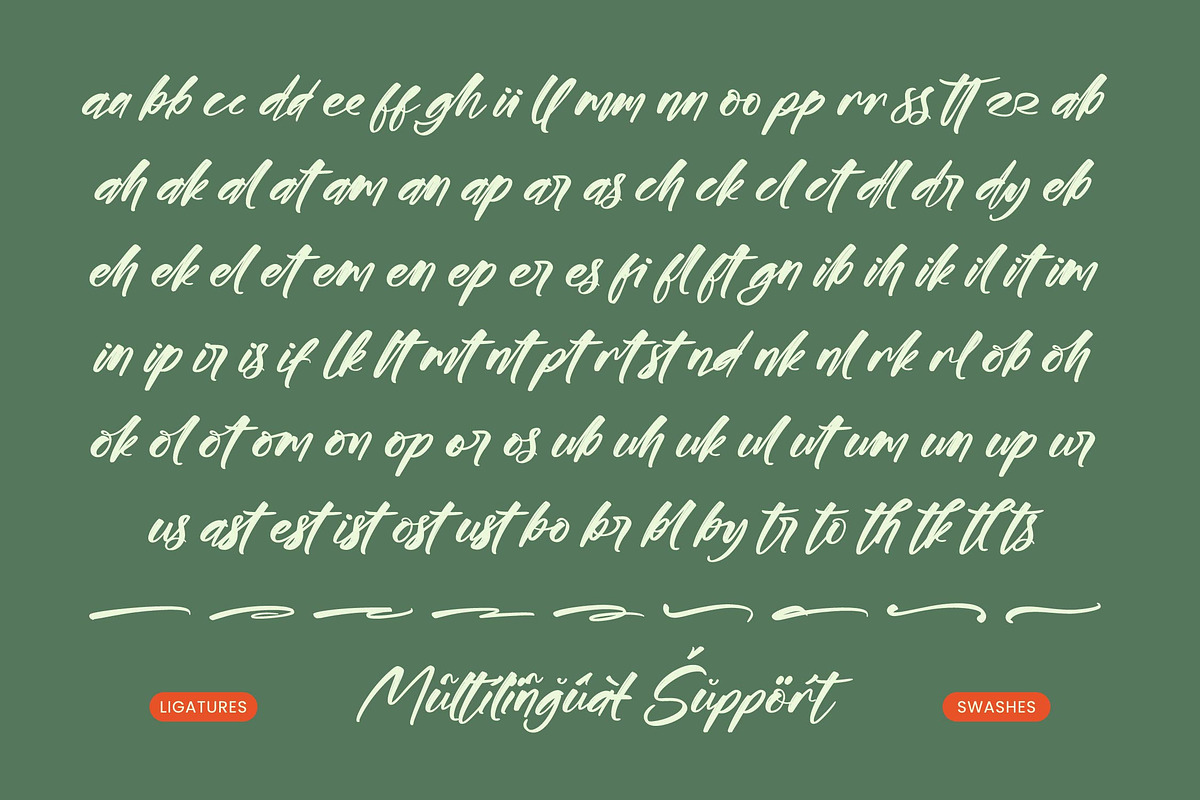 aa bb cc dd ee ff gh ii ll mm nn oo pp rr ss tt zz ab
ah ak al at am an ap ar as ch ck cl ct dl dr dy eb
eh ek el et em en ep er es fi fl ft gn ib ih ik il it im
in ip ir is if lk lt mt nt pt rt st nd nk nl rk rl ob oh
ok ol ot om on op or os ub uh uk ul ut um un up ur
us ast est ist ost ust bo br bl by tr to th tk tl ts
LIGATURES
SWASHES